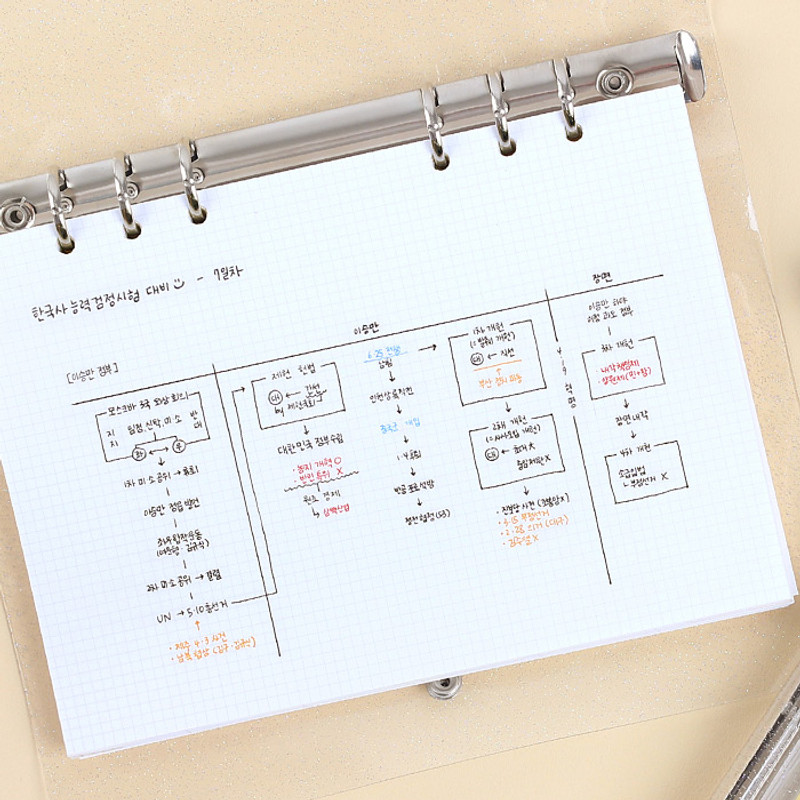 한국사능력검정시험 대비 - 7일차
[이승만 정부]
모스크바 3국 외상 회의
지 임정, 신탁, 미·소 반
지 대
좌 우
1차 미·소 공위 → 휴회
이승만 정읍 발언
좌우합작운동
(여운형·김규식)
2차 미·소 공위 → 결렬
UN → 5·10 총선거
· 제주 4·3 사건
· 남북 협상 (김구·김규식)
이승만
제헌 헌법
대 ← 간선
by 제헌국회
대한민국 정부수립
· 농지 개혁 O
· 반민특위 X
원조 경제
↳ 삼백산업
6·25 전쟁
남침
인천상륙작전
중공군 개입
1·4 후퇴
반공 포로 석방
정전협정 (53)
1차 개헌
(발췌 개헌)
대 ← 직선
부산 정치 파동
2차 개헌
(사사오입 개헌)
대 ← 초대 大
중임제한 X
진보당 사건 (조봉암 X)
· 3·15 부정선거
· 2·28 의거 (대구)
· 김주열 X
4·19 혁명
장면
이승만 하야
허정 과도 정부
3차 개헌
· 내각책임제
· 양원제 (민+참)
장면 내각
4차 개헌
소급입법
↳ 부정선거 X